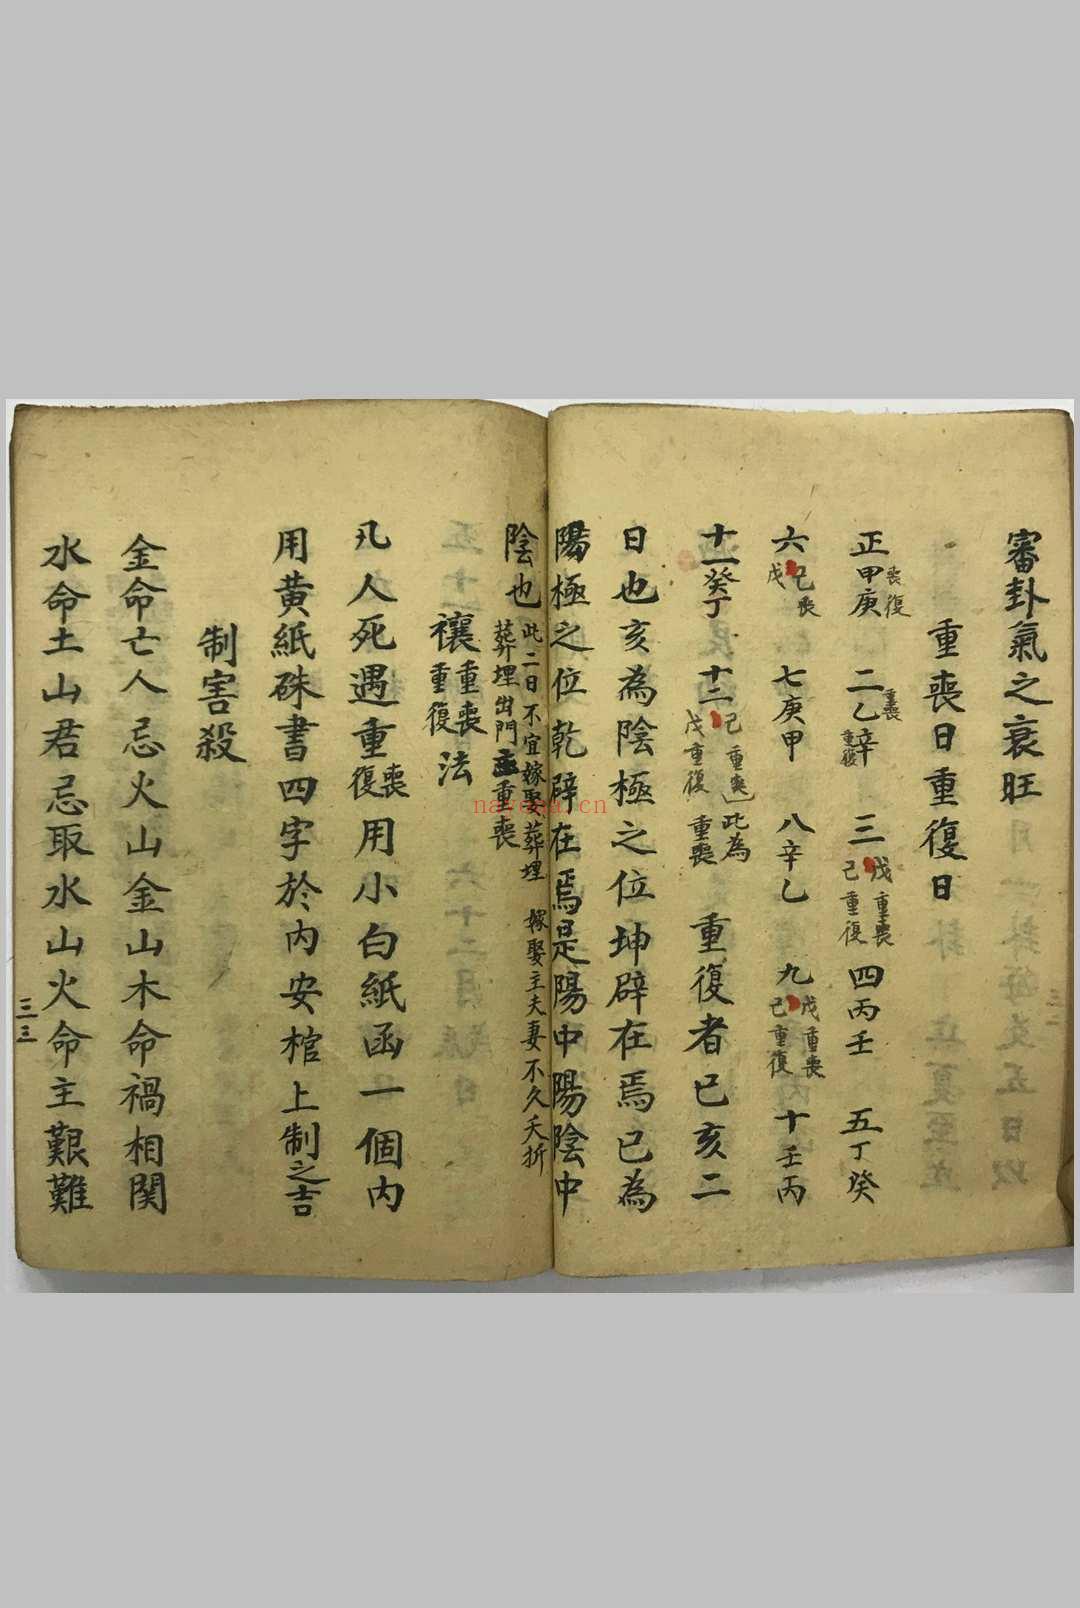 審卦氣之衰旺
重喪日重復日
正甲庚喪復 二乙重喪辛重復 三戊重喪己重復 四丙壬 五丁癸
六己喪戊 七庚甲 八辛乙 九戊重喪己重復 十壬丙
十一癸丁 十二己重喪戊重復 此為重喪 重復者巳亥二
日也亥為陰極之位坤辟在焉巳為
陽極之位乾辟在焉是陽中陽陰中
陰也此二日不宜嫁娶葬埋 嫁娶主夫妻不久夭折
葬埋出門主重喪
禳重喪重復法
凡人死遇重喪復用小白紙函一個內
用黃紙硃書四字於內安棺上制之吉
制害殺
金命亡人忌火山金山木命禍相関
水命土山君忌取水山火命主艱難
三三
navoqa.cn